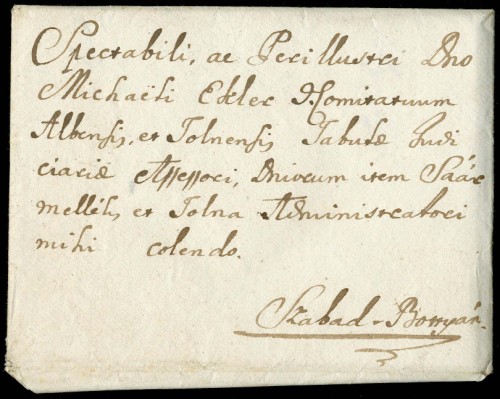 Spectabili, ac Perillustri Dno
Michaëli Ekler I. Comitatuum
Albensis, et Tolnensis Tabulæ Judi
ciariæ Assessori, Dniorum item Saár
mellék, et Tolna Administratori
mihi colendo.
Szabad-Battyán.